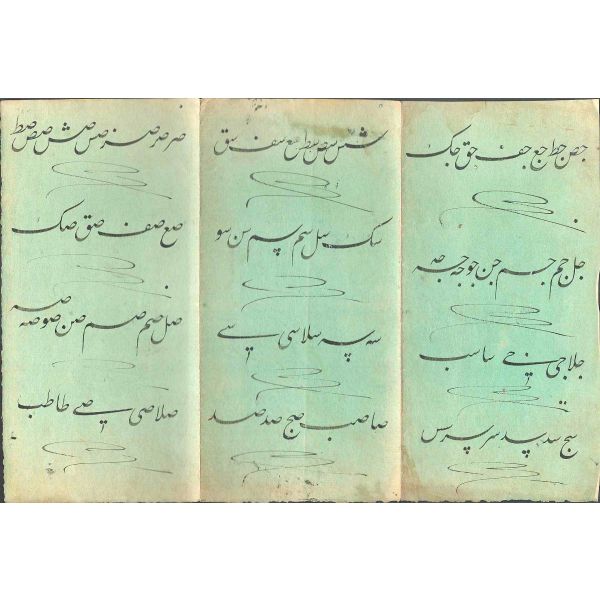 جص جط جع جف جق جک
جل جم جم جن جو جه جه
جلا جی جے سا سب
سج سد سد سر سر سس
سس سص سط سع سف سق
سک سل سم سم سن سو
سه سه سلا سی سے
صا صب صج صد صد
صر صر صر صس صس صص صط
صع صف صق صک
صل صم صم صن صو صه صه
صلا صی صے طا طب